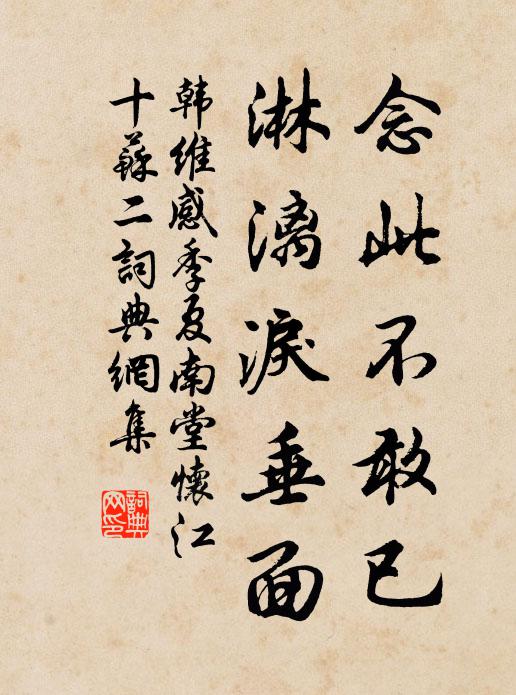 念此不敢已
淋漓淚垂面
韩維感季夏南堂懷江
十蘇二詞典網集
詞典網印